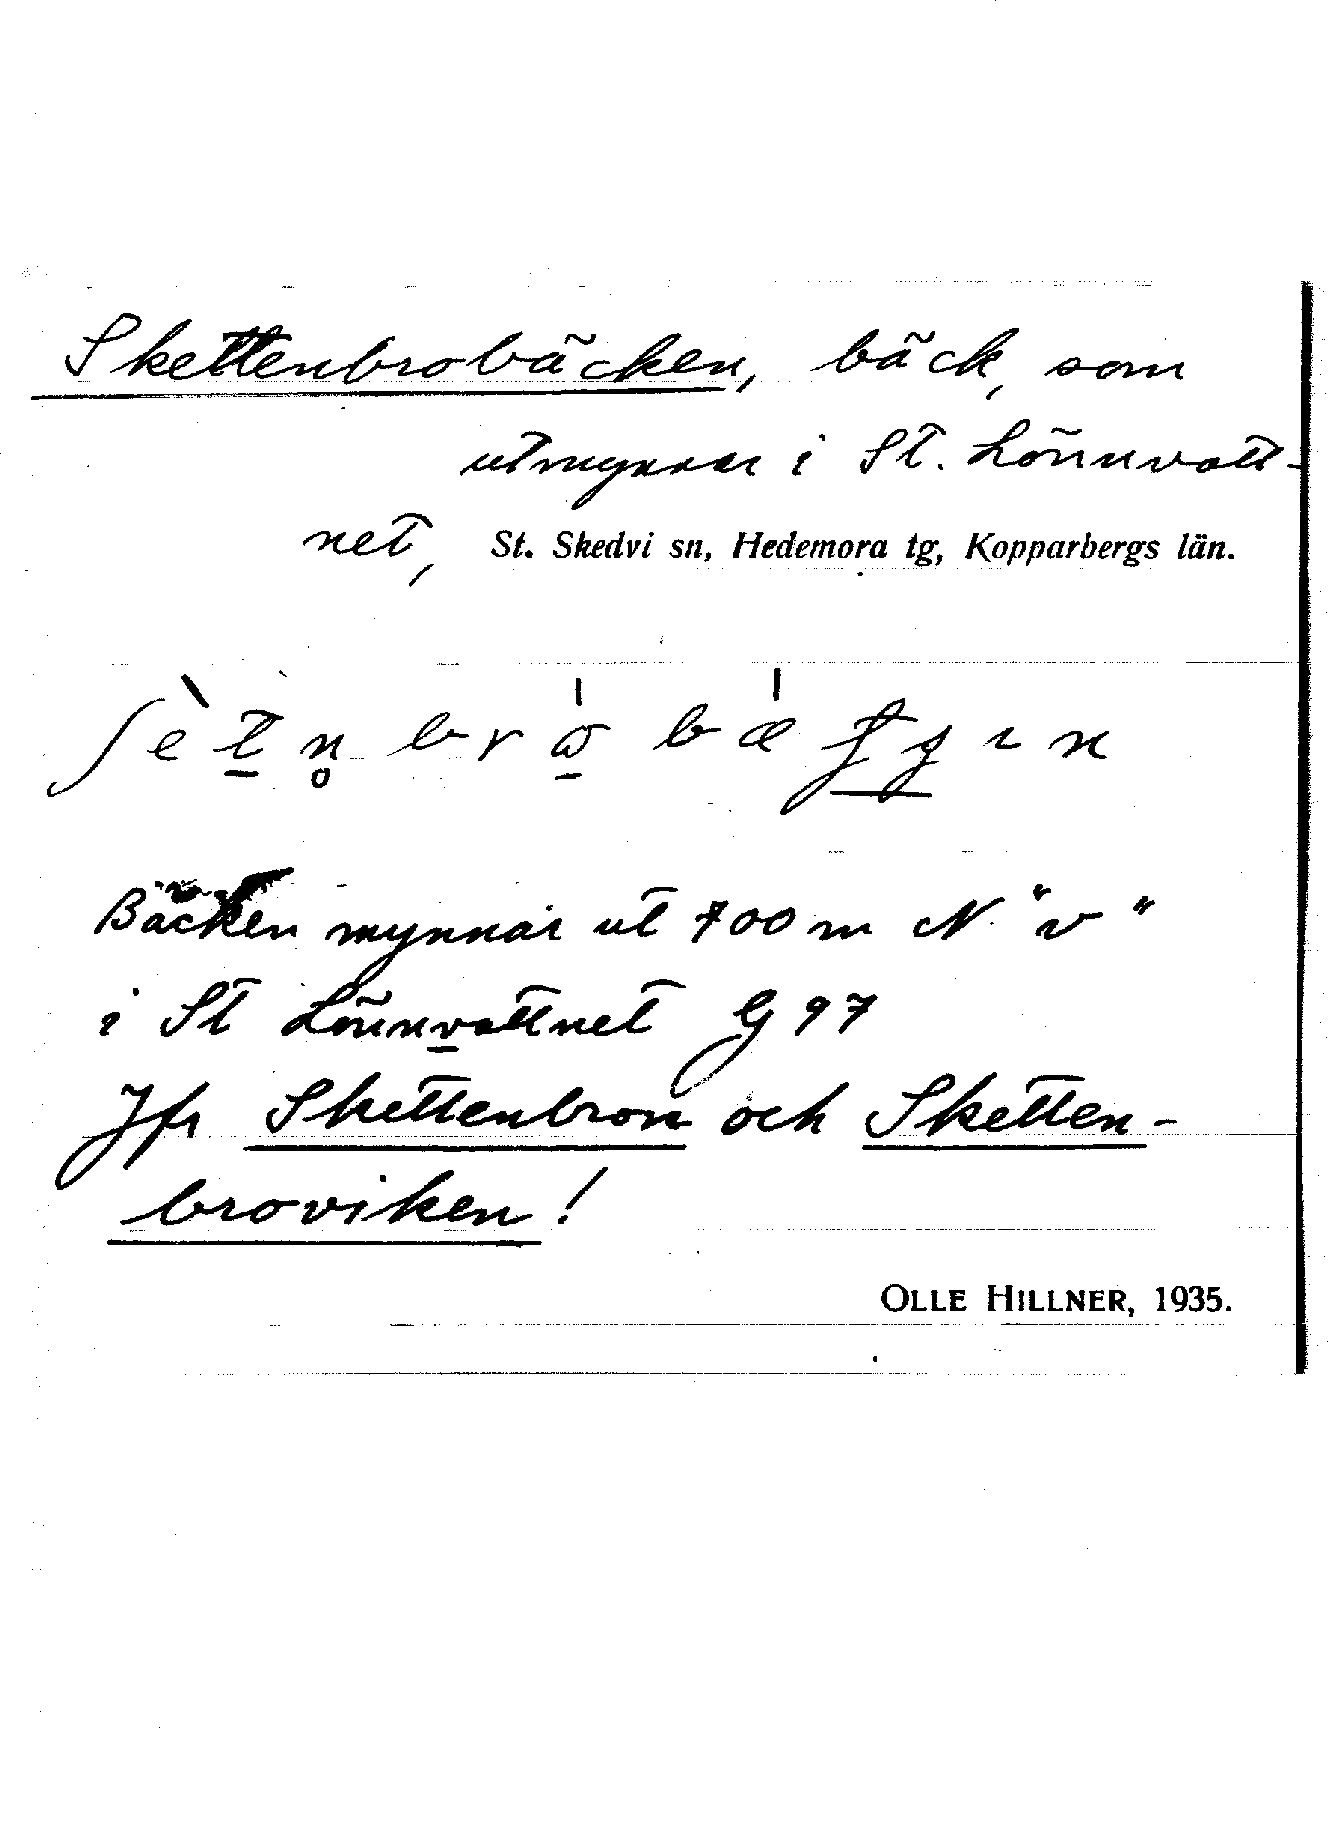 Skettenbrobäcken, bäck, som
utmynnar i St. Lönnvatt-
net, St. Skedvi sn, Hedemora tg, Kopparbergs län.
Bäcken mynnar ut 700 m N "v"
i St Lönnvattnet G 97
Jfr Skettenbron och Sketten-
broviken!
OLLE HILLNER, 1935.